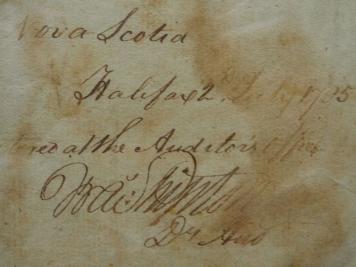 Nova Scotia
Halifax 2d July 1785
tered at the Auditor's Office
Dy Aud